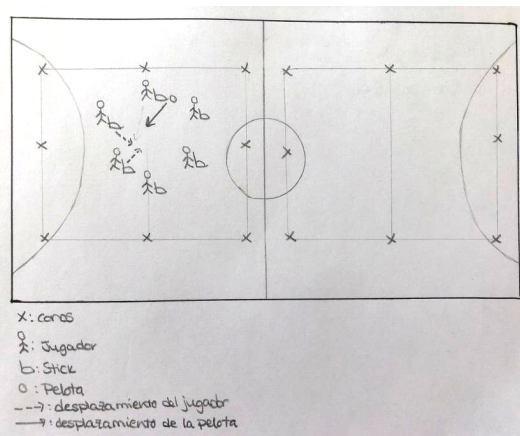 X: conos
: Jugador
: Stick
O: Pelota
--->: desplazamiento del jugador
→: desplazamiento de la pelota